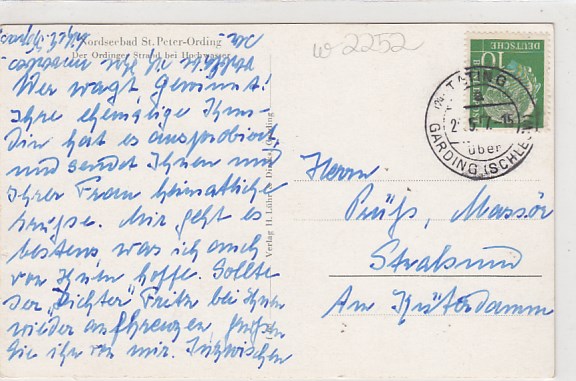 Nordseebad St. Peter-Ording
Der Ordinger Strand bei Hochwasser
Wer wagt, gewinnt!
Ihre ehemalige Kun-
din hat es ausprobiert
und sendet Ihnen und
Ihrer Frau heimatliche
Grüße. Mir geht es
bestens, was ich auch
von Ihnen hoffe. Sollte
der „Dichter“ Fritz bei Ihnen
wieder aufkreuzen, grüßen
Sie ihn von mir. Inzwischen
Verlag H. Lühr
w 2252
DEUTSCHE
10
TATING
über
GARDING (SCHLESW
Herrn
Prüß, Massör
Stralsund
Am Küterdamm